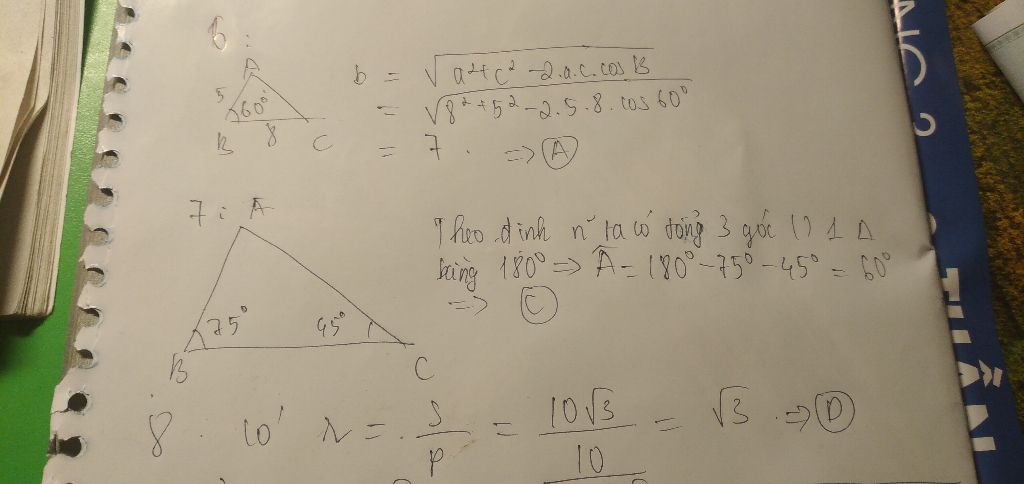 6 :
A
5
60°
B 8 C
b = √a²+c²-2.a.c.cos B
= √8²+5²-2.5.8.cos60°
= 7. => A
7 : A
75° 45°
B C
Theo định lí ta có tổng 3 góc 1 Δ
bằng 180° => Â = 180° - 75° - 45° = 60°
=> C
8. có r = S/p = 10√3/10 = √3 => D